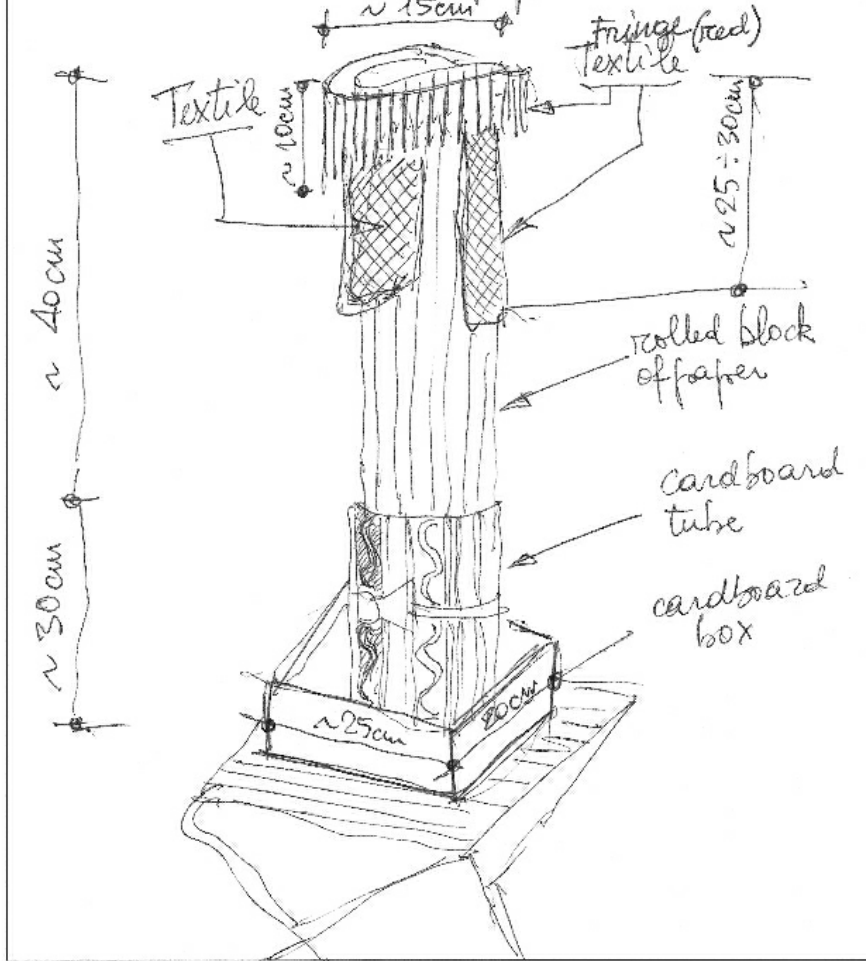 ~ 15cm
Fringe (red)
Textile
Textile
~ 10cm
~ 25÷30cm
~ 40cm
rolled block
of paper
cardboard
tube
~ 30cm
cardboard
box
~25cm
20cm